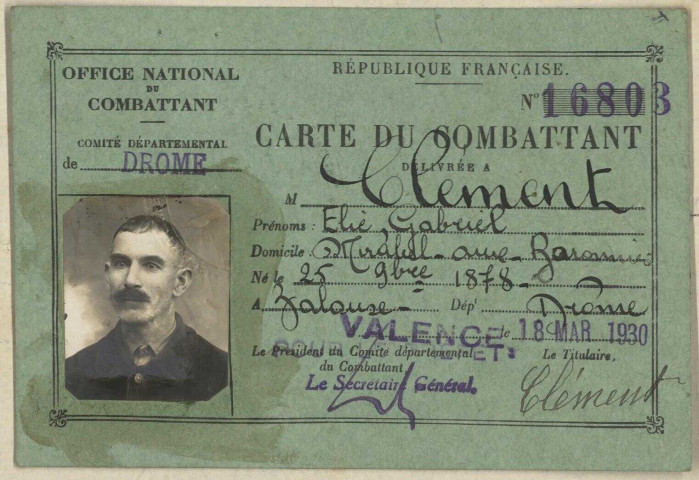 OFFICE NATIONAL
DU
COMBATTANT
COMITÉ DÉPARTEMENTAL
de DROME
RÉPUBLIQUE FRANÇAISE.
N° 16803
CARTE DU COMBATTANT
DÉLIVRÉE A
M Clément
Prénoms : Elie Gabriel
Domicile : Mirabel-aux-Baronnies
Né le 25 9bre 1878
A Dép^t Drome
VALENCE le 18 MAR 1930
POUR ET
Le Président du Comité départemental
du Combattant
Le Secrétaire Général.
Le Titulaire,
Clément